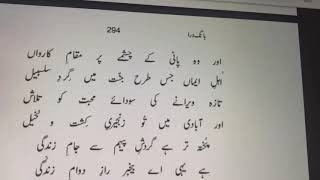 بانگ درا
294
اور وہ پانی کے چشمے پر مقامِ کارواں
اہلِ ایماں جس طرح جنت میں گردِ سلسبیل
تازہ ویرانے کی سودائے محبت کو تلاش
اور آبادی میں تو زنجیریِ کِشت و نخیل
پختہ تر ہے گردشِ پیہم سے جامِ زندگی
ہے یہی اے بیخبر رازِ دوامِ زندگی